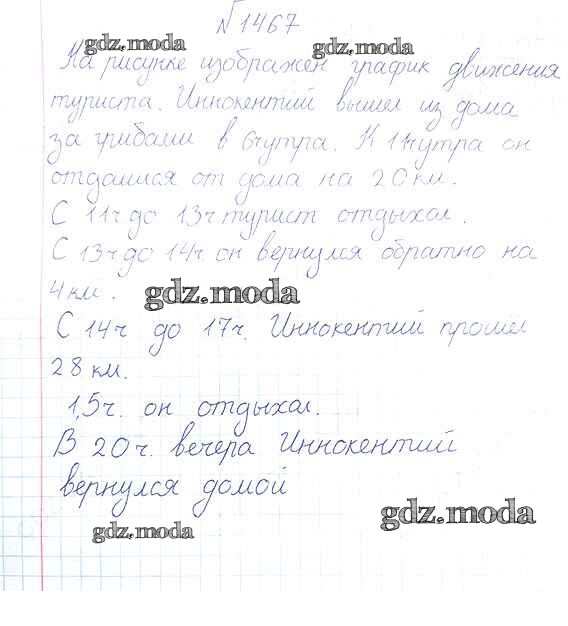 №1467
gdz.moda
gdz.moda
На рисунке изображен график движения
туриста. Иннокентий вышел из дома
за грибами в 6ч утра. К 11ч утра он
отдалился от дома на 20 км.
С 11ч до 13ч турист отдыхал.
С 13ч до 14ч. он вернулся обратно на
4 км.
gdz.moda
С 14ч до 17ч. Иннокентий прошёл
28 км.
1,5ч. он отдыхал.
В 20ч. вечера Иннокентий
вернулся домой
gdz.moda
gdz.moda